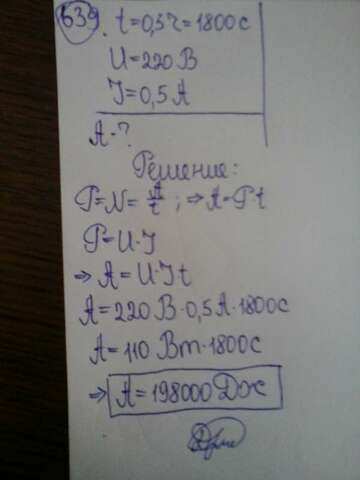 639. t=0,5ч=1800с
U=220В
I=0,5А
А-?
Решение:
P=N=A/t; ⇒ A=Pt
P=U·I
⇒ A=U·It
A=220В·0,5А·1800с
A=110Вт·1800с
⇒ A=198000Дж